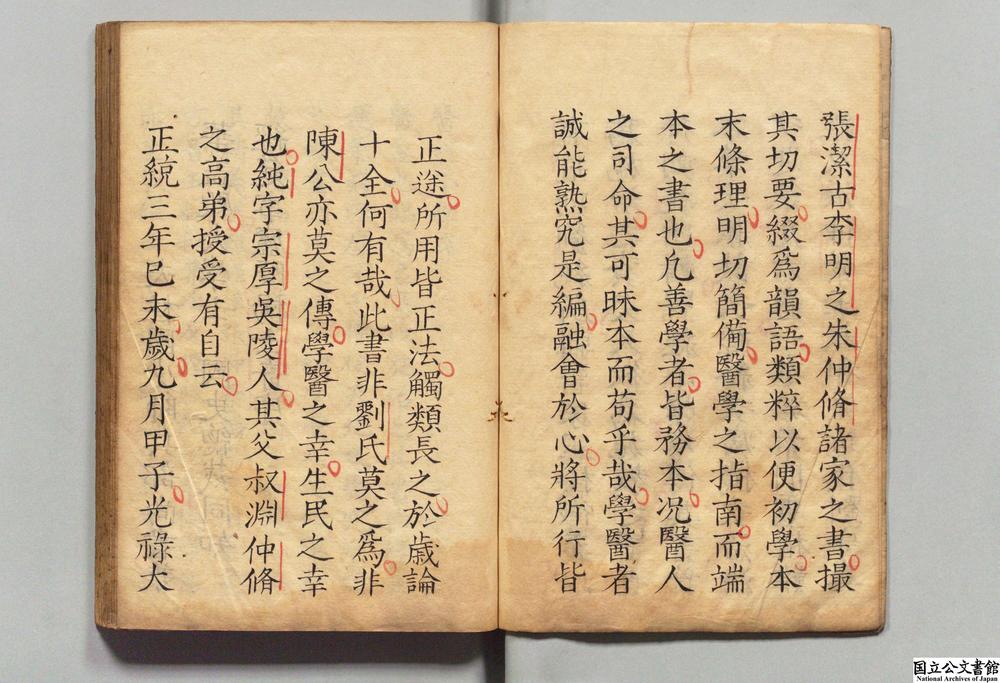 張潔古李明之朱仲脩諸家之書撮
其切要綴爲韻語類粹以便初學本
末條理明切簡備醫學之指南而端
本之書也凡善學者皆務本况醫人
之司命其可昧本而苟乎哉學醫者
誠能熟究是編融會於心將所行皆
正途所用皆正法觸類長之於歲論
十全何有哉此書非劉氏莫之爲非
陳公亦莫之傳學醫之幸生民之幸
也純字宗厚吳陵人其父叔淵仲脩
之高弟授受有自云
正統三年巳未歲九月甲子光祿大
国立公文書館
National Archives of Japan